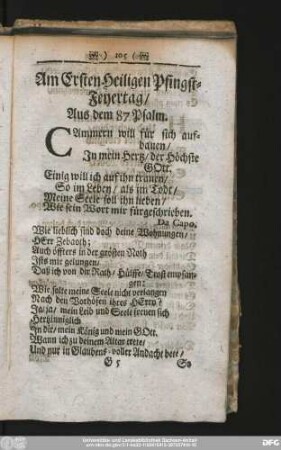 ) 105 (
Am Ersten Heiligen Pfingst-
Feyertag/
Aus dem 87 Psalm.
CAmmern will für sich auf-
bauen/
In mein Hertz/ der Höchste
GOtt,
Einig will ich auf ihn trauen/
So im Leben/ als im Todt/
Meine Seele soll ihn lieben/
Wie sein Wort mir fürgeschrieben.
Da Capo.
Wie lieblich sind doch deine Wohnungen/
HErr Zebaoth;
Auch öffters in der grösten Noth
Ists mir gelungen/
Daß ich von dir Rath/ Hülffe/ Trost empfan-
gen:
Wie solte meine Seele nicht verlangen
Nach den Vorhöfen ihres HErrn?
Ja/ ja/ mein Leib und Seele freuen sich
Hertzinniglich
In dir/ mein König und mein GOtt.
Wann ich zu deinem Altar trete/
Und nur in Glaubens-voller Andacht bete/
G 5 So
Universitäts- und Landesbibliothek Sachsen-Anhalt
DFG